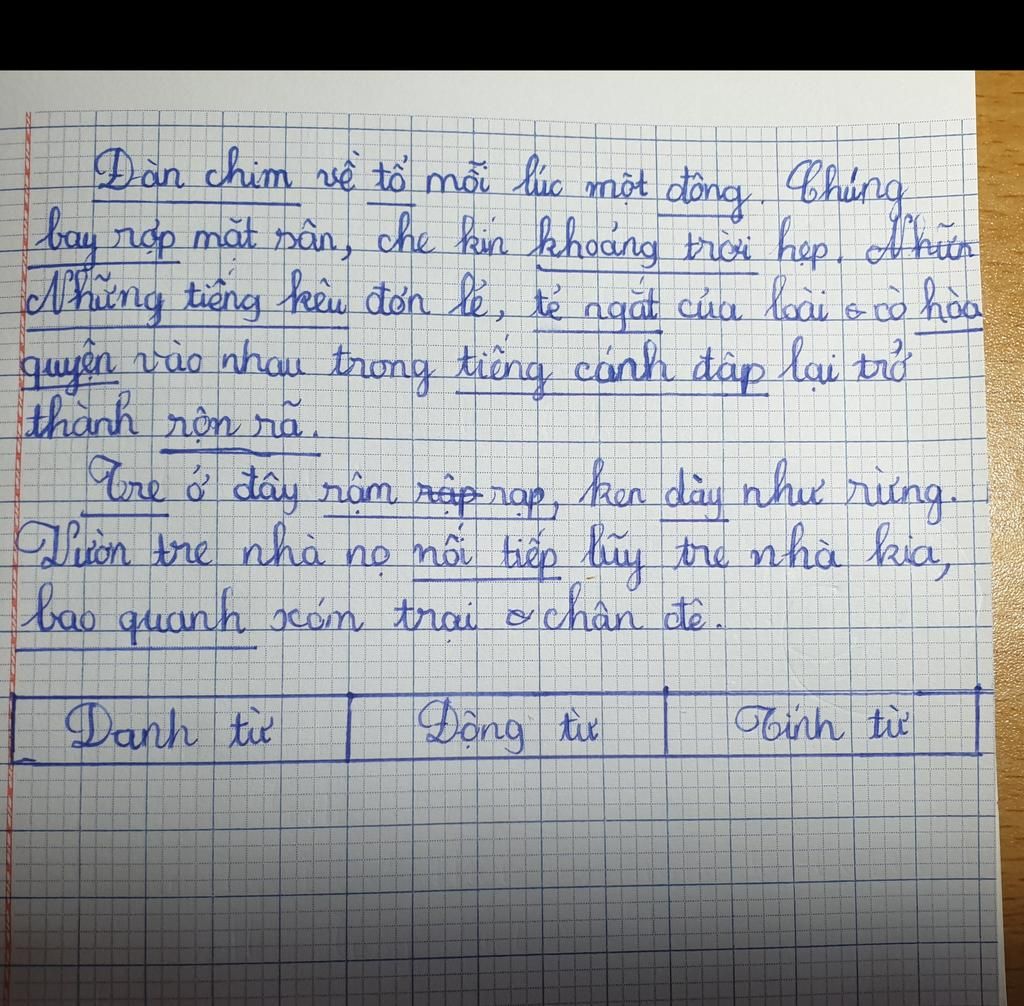 Đàn chim về tổ mỗi lúc một đông. Chúng
bay rợp mặt sân, che kín khoảng trời hẹp. Nhữn
Những tiếng kêu đơn lẻ, tẻ ngắt của loài cò hòa
quyện vào nhau trong tiếng cánh đập lại trở
thành rộn rã.
Tre ở đây rậm rập rạp, ken dày như rừng.
Vườn tre nhà nọ nối tiếp lũy tre nhà kia,
bao quanh xóm trại chân đê.
Danh từ Động từ Tính từ